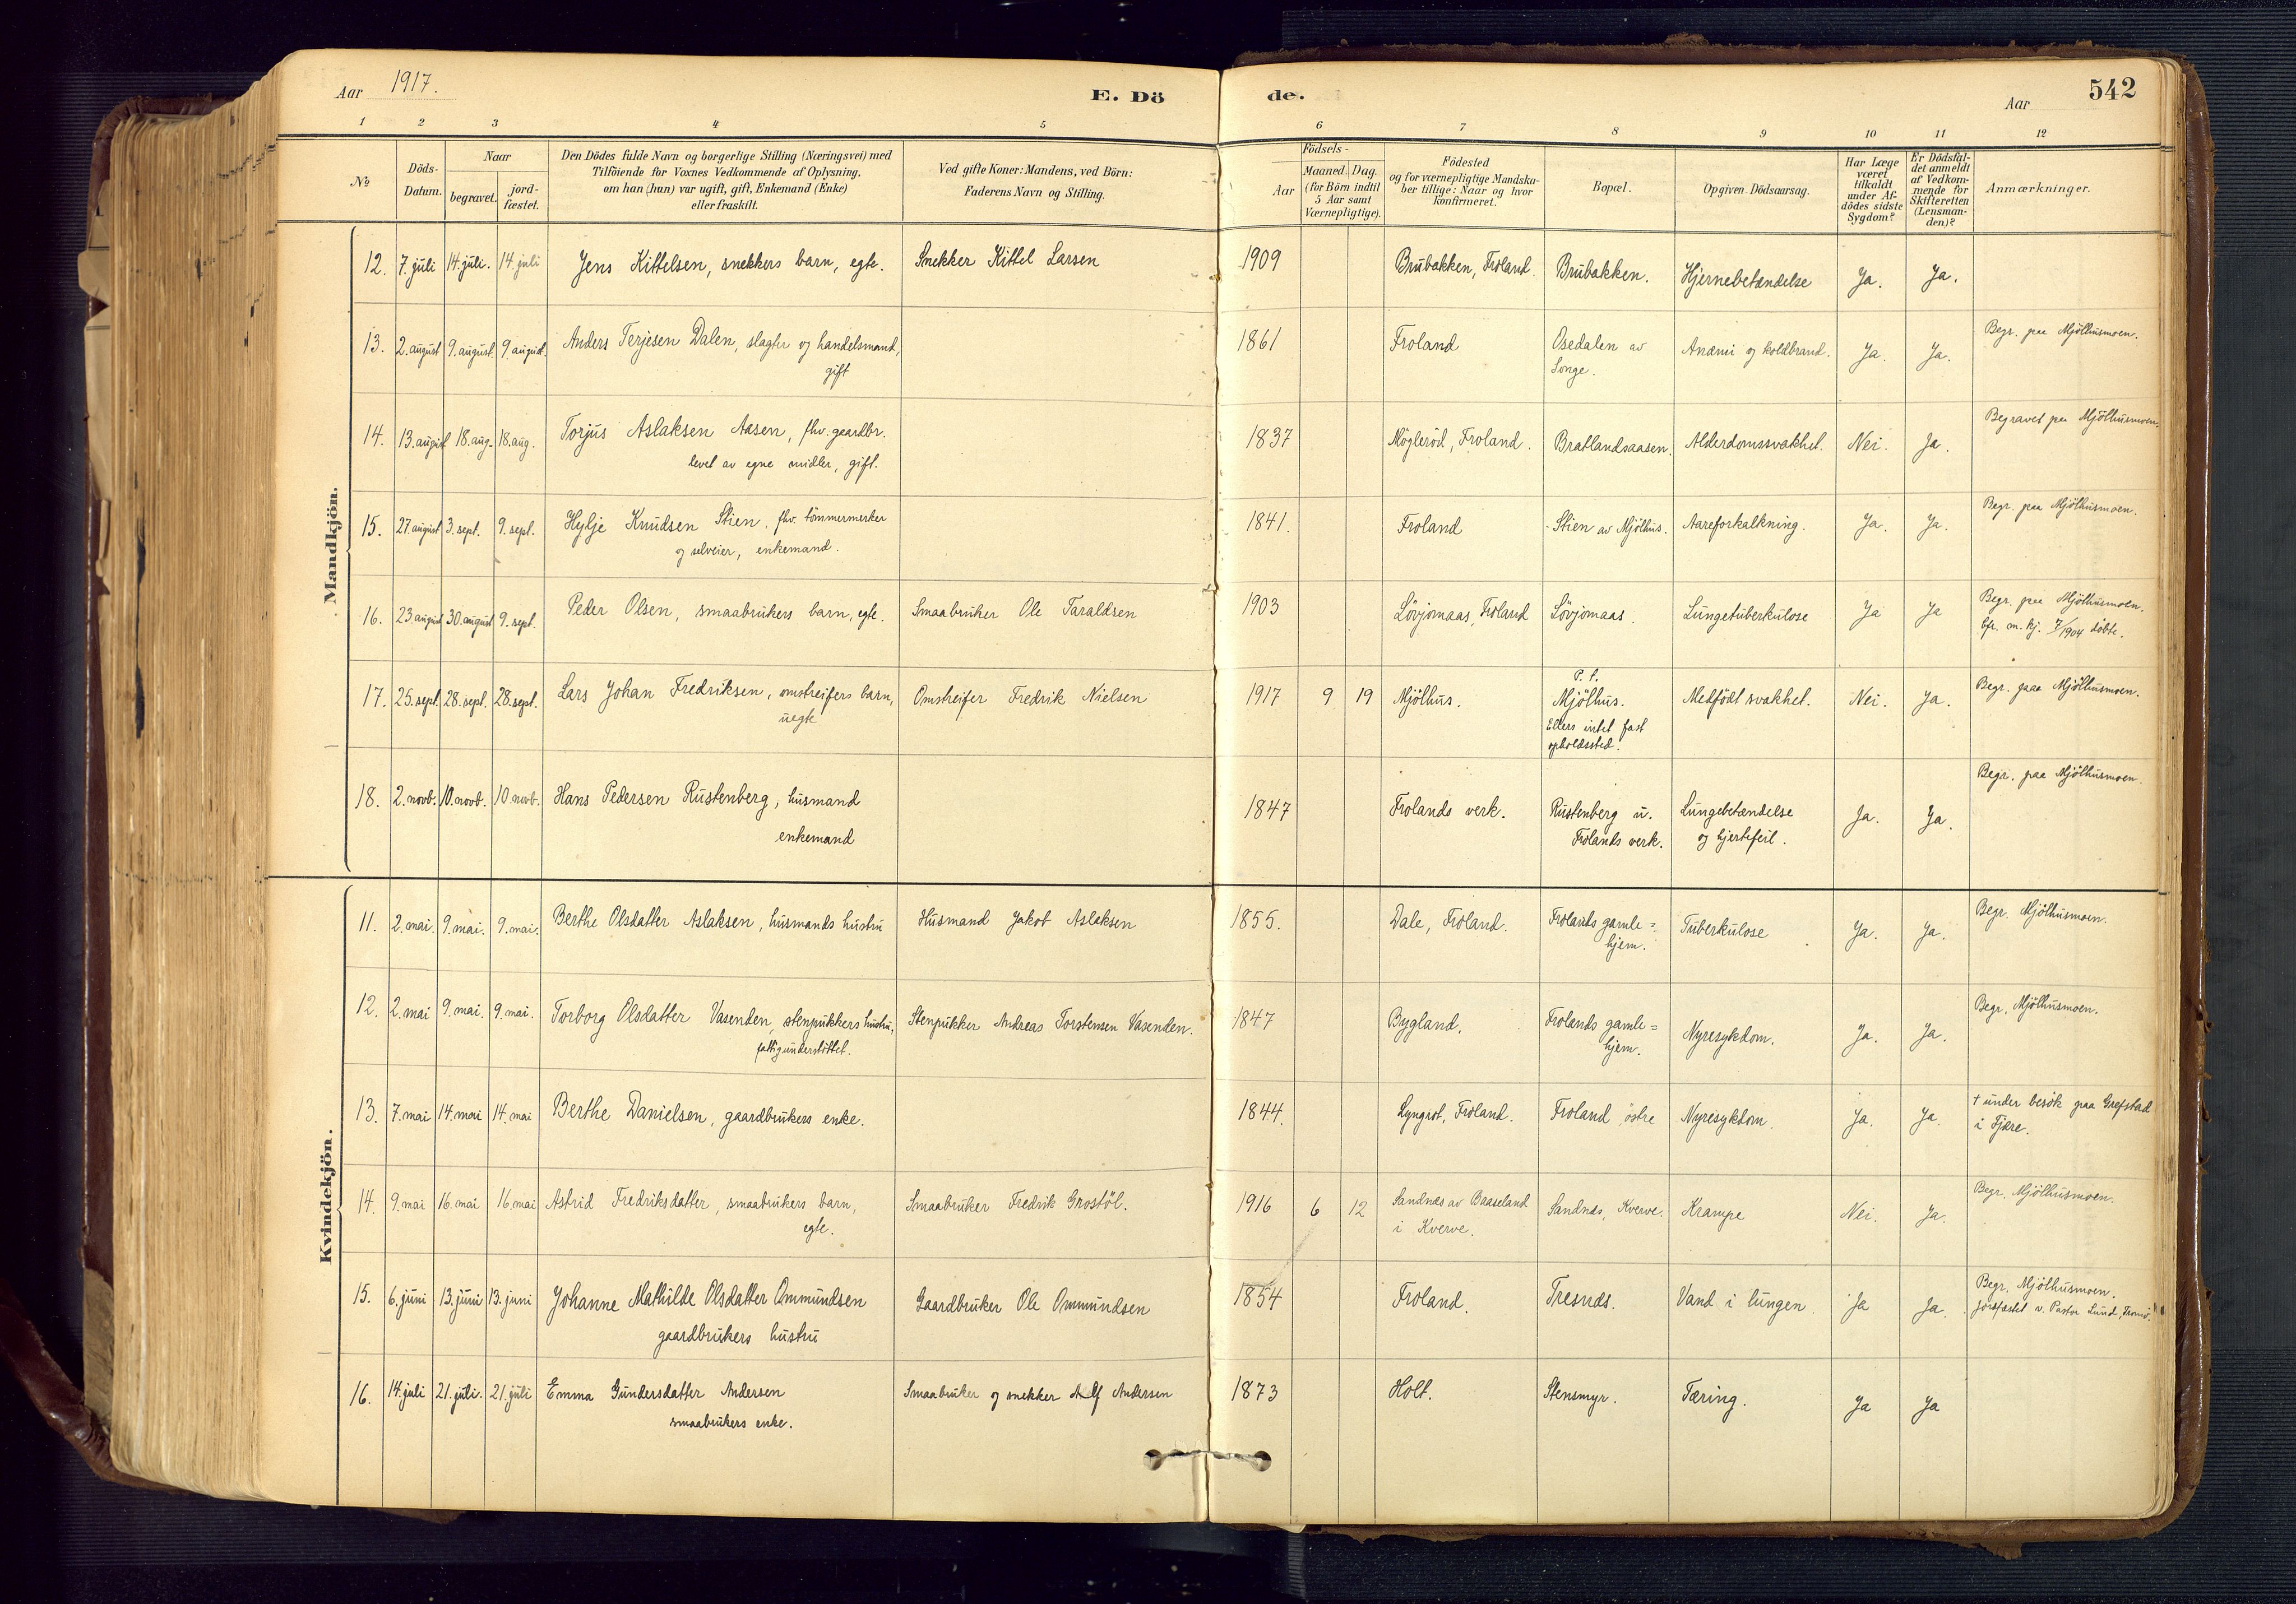 Aar 1917.
E. Dö
de.
Aar
542
1 2 3 4 5 6 7 8 9 10 11 12
No
Döds-
Datum.
Naar
begravet.
jord-
fæstet.
Den Dödes fulde Navn og borgerlige Stilling (Næringsvei) med
Tilföiende for Voxnes Vedkommende af Oplysning,
om han (hun) var ugift, gift, Enkemand (Enke)
eller fraskilt.
Ved gifte Koner: Mandens, ved Börn:
Faderens Navn og Stilling.
Födsels-
Aar
Maaned. Dag.
(for Börn indtil
5 Aar samt
Værnepligtige).
Födested
og for værnepligtige Mandska-
ber tillige: Naar og hvor
konfirmeret.
Bopæl.
Opgiven Dödsaarsag.
Har Læge
været
tilkaldt
under Af-
dödes sidste
Sygdom?
Er Dödsfal-
det anmeldt
af Vedkom-
mende for
Skifteretten
(Lensman-
den)?
Anmærkninger.
Mandkjön.
12. 7. juli 14. juli. 14. juli Jens Kittelsen, snekkers barn, egte. Snekker Kittel Larsen 1909 Brubakken, Froland. Brubakken. Hjernebetændelse Ja. Ja.
13. 2. august 9. august. 9. august. Anders Terjesen Dalen, slagter og handelsmand,
gift
1861 Froland Osedalen av
Songe.
Anæmi og koldbrand. Ja. Ja. Begr. paa Mjölhusmoen.
14. 13. august 18. aug. 18. aug. Torjus Aslaksen Aasen, fhv. gaardbr.
levet av egne midler, gift.
1837 Mögleröd, Froland. Bratlandsaasen. Alderdomssvakhet. Nei. Ja. Begravet paa Mjölhusmoen.
15. 27. august 3. sept. 9. sept. Hylje Knudsen Stien, fhv. tömmermerker
og selveier, enkemand.
1841. Froland Stien av Mjölhus. Aareforkalkning. Ja. Ja. Begr. paa Mjölhusmoen.
16. 23. august 30. august 9. sept. Peder Olsen, smaabrukers barn, egte. Smaabruker Ole Taraldsen 1903 Lövjomaas, Froland Lövjomaas. Lungetuberkulose Ja Ja Begr. paa Mjölhusmoen.
1904 döbte.
17. 25. sept. 28. sept. 28. sept. Lars Johan Fredriksen, omstreifers barn,
uegte
Omstreifer Fredrik Nielsen 1917 9 19 Mjölhus. P. t.
Mjölhus.
Ellers intet fast
opholdssted.
Medfödt svakhet. Nei. Ja. Begr. paaa Mjölhusmoen.
18. 2. novb. 10. novb. 10. novb. Hans Pedersen Rustenberg, husmand
enkemand
1847 Frolands verk. Rustenberg u.
Frolands verk.
Lungebetændelse
og hjertefeil.
Ja. Ja. Begr. paa Mjölhusmoen.
Kvindekjön.
11. 2. mai. 9. mai. 9. mai. Berthe Olsdatter Aslaksen, husmands hustru Husmand Jakob Aslaksen 1855. Dale, Froland. Frolands gamle=
hjem.
Tuberkulose Ja. Ja. Begr. Mjölhusmoen.
12. 2. mai 9. mai. 9. mai. Torborg Olsdatter Vasenden, stenpukkers hustru,
fattigunderstöttet.
Stenpukker Andreas Torstensen Vasenden. 1847 Bygland. Frolands gamle=
hjem.
Nyresykdom. Ja. Ja. Begr. Mjölhusmoen.
13. 7. mai 14. mai 14. mai Berthe Danielsen, gaardbrukers enke. 1844. Lyngrot, Froland. Froland östre Nyresykdom. Ja. Ja. † under besök paa Grefstad
i Fjære.
14. 9. mai 16. mai 16. mai Astrid Fredriksdatter, smaabrukers barn,
egte.
Smaabruker Fredrik Grostöl. 1916 6 12 Sandnæs av Baaseland
i Kverve.
Sandnæs, Kverve. Krampe Nei. Ja. Begr. Mjölhusmoen.
15. 6. juni 13. juni 13. juni Johanne Mathilde Olsdatter Ommundsen
gaardbrukers hustru
Gaardbruker Ole Ommundsen 1854 Froland. Tresnæs. Vand i lungen. Ja Ja. Begr. Mjölhusmoen.
jordfæstet v. Pastor Lund, Tromö.
16. 14. juli 21. juli. 21. juli Emma Gundersdatter Andersen
smaabrukers enke.
Smaabruker og snekker Alf Andersen 1873 Holt. Stensmyr. Tæring. Ja Ja